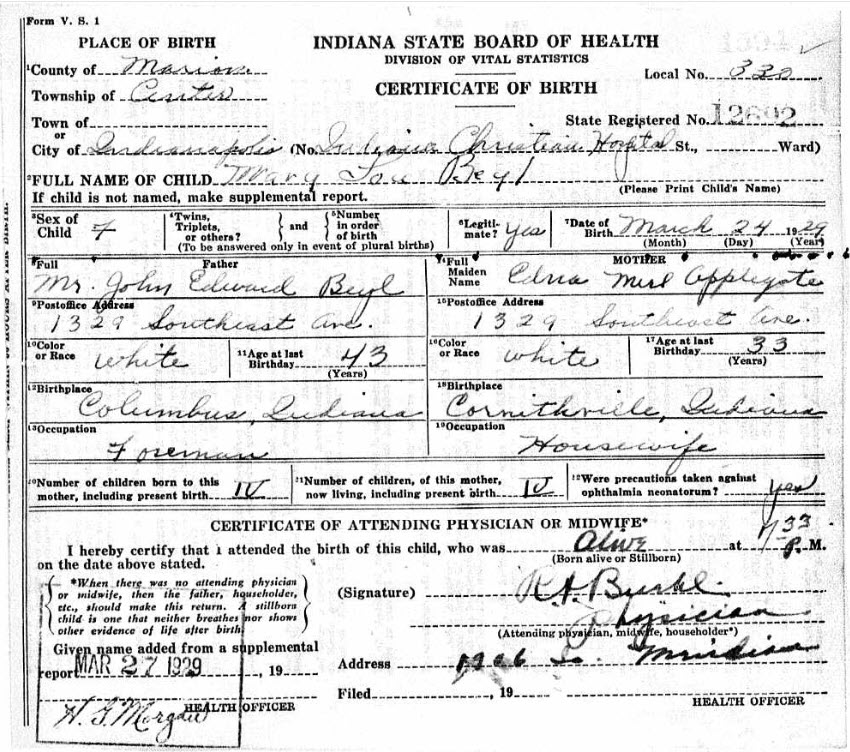 Form V. S. 1
PLACE OF BIRTH
INDIANA STATE BOARD OF HEALTH
DIVISION OF VITAL STATISTICS
CERTIFICATE OF BIRTH
1County of Marion
Local No. 330
Township of Center
Town of
or
State Registered No. 12692
City of Indianapolis (No. Indiana Christian Hospital St., Ward)
2FULL NAME OF CHILD Mary Lou Beyl
(Please Print Child's Name)
If child is not named, make supplemental report.
3Sex of Child F
4Twins, Triplets, or others? } and { 5Number in order of birth
(To be answered only in event of plural births)
6Legitimate? yes
7Date of Birth March 24 1929
(Month) (Day) (Year)
8Full Father
Mr. John Edward Beyl
14Full Maiden Name MOTHER
Edna Merl Applegate
9Postoffice Address
1329 Southeast Ave.
15Postoffice Address
1329 Southeast Ave.
10Color or Race white
11Age at last Birthday 43
(Years)
16Color or Race white
17Age at last Birthday 33
(Years)
12Birthplace
Columbus, Indiana
18Birthplace
Cornithville, Indiana
13Occupation
Foreman
19Occupation
Housewife
20Number of children born to this mother, including present birth IV
21Number of children, of this mother, now living, including present birth IV
22Were precautions taken against ophthalmia neonatorum? yes
CERTIFICATE OF ATTENDING PHYSICIAN OR MIDWIFE*
I hereby certify that I attended the birth of this child, who was Alive at 7:33 P. M.
on the date above stated.
(Born alive or Stillborn)
*When there was no attending physician
or midwife, then the father, householder,
etc., should make this return. A stillborn
child is one that neither breathes nor shows
other evidence of life after birth
(Signature)
Physician
(Attending physician, midwife, householder*)
Given name added from a supplemental
report MAR 27 1929, 19
Address 1906 So. Meridian
Filed , 19
H. G. Morgan
HEALTH OFFICER
HEALTH OFFICER